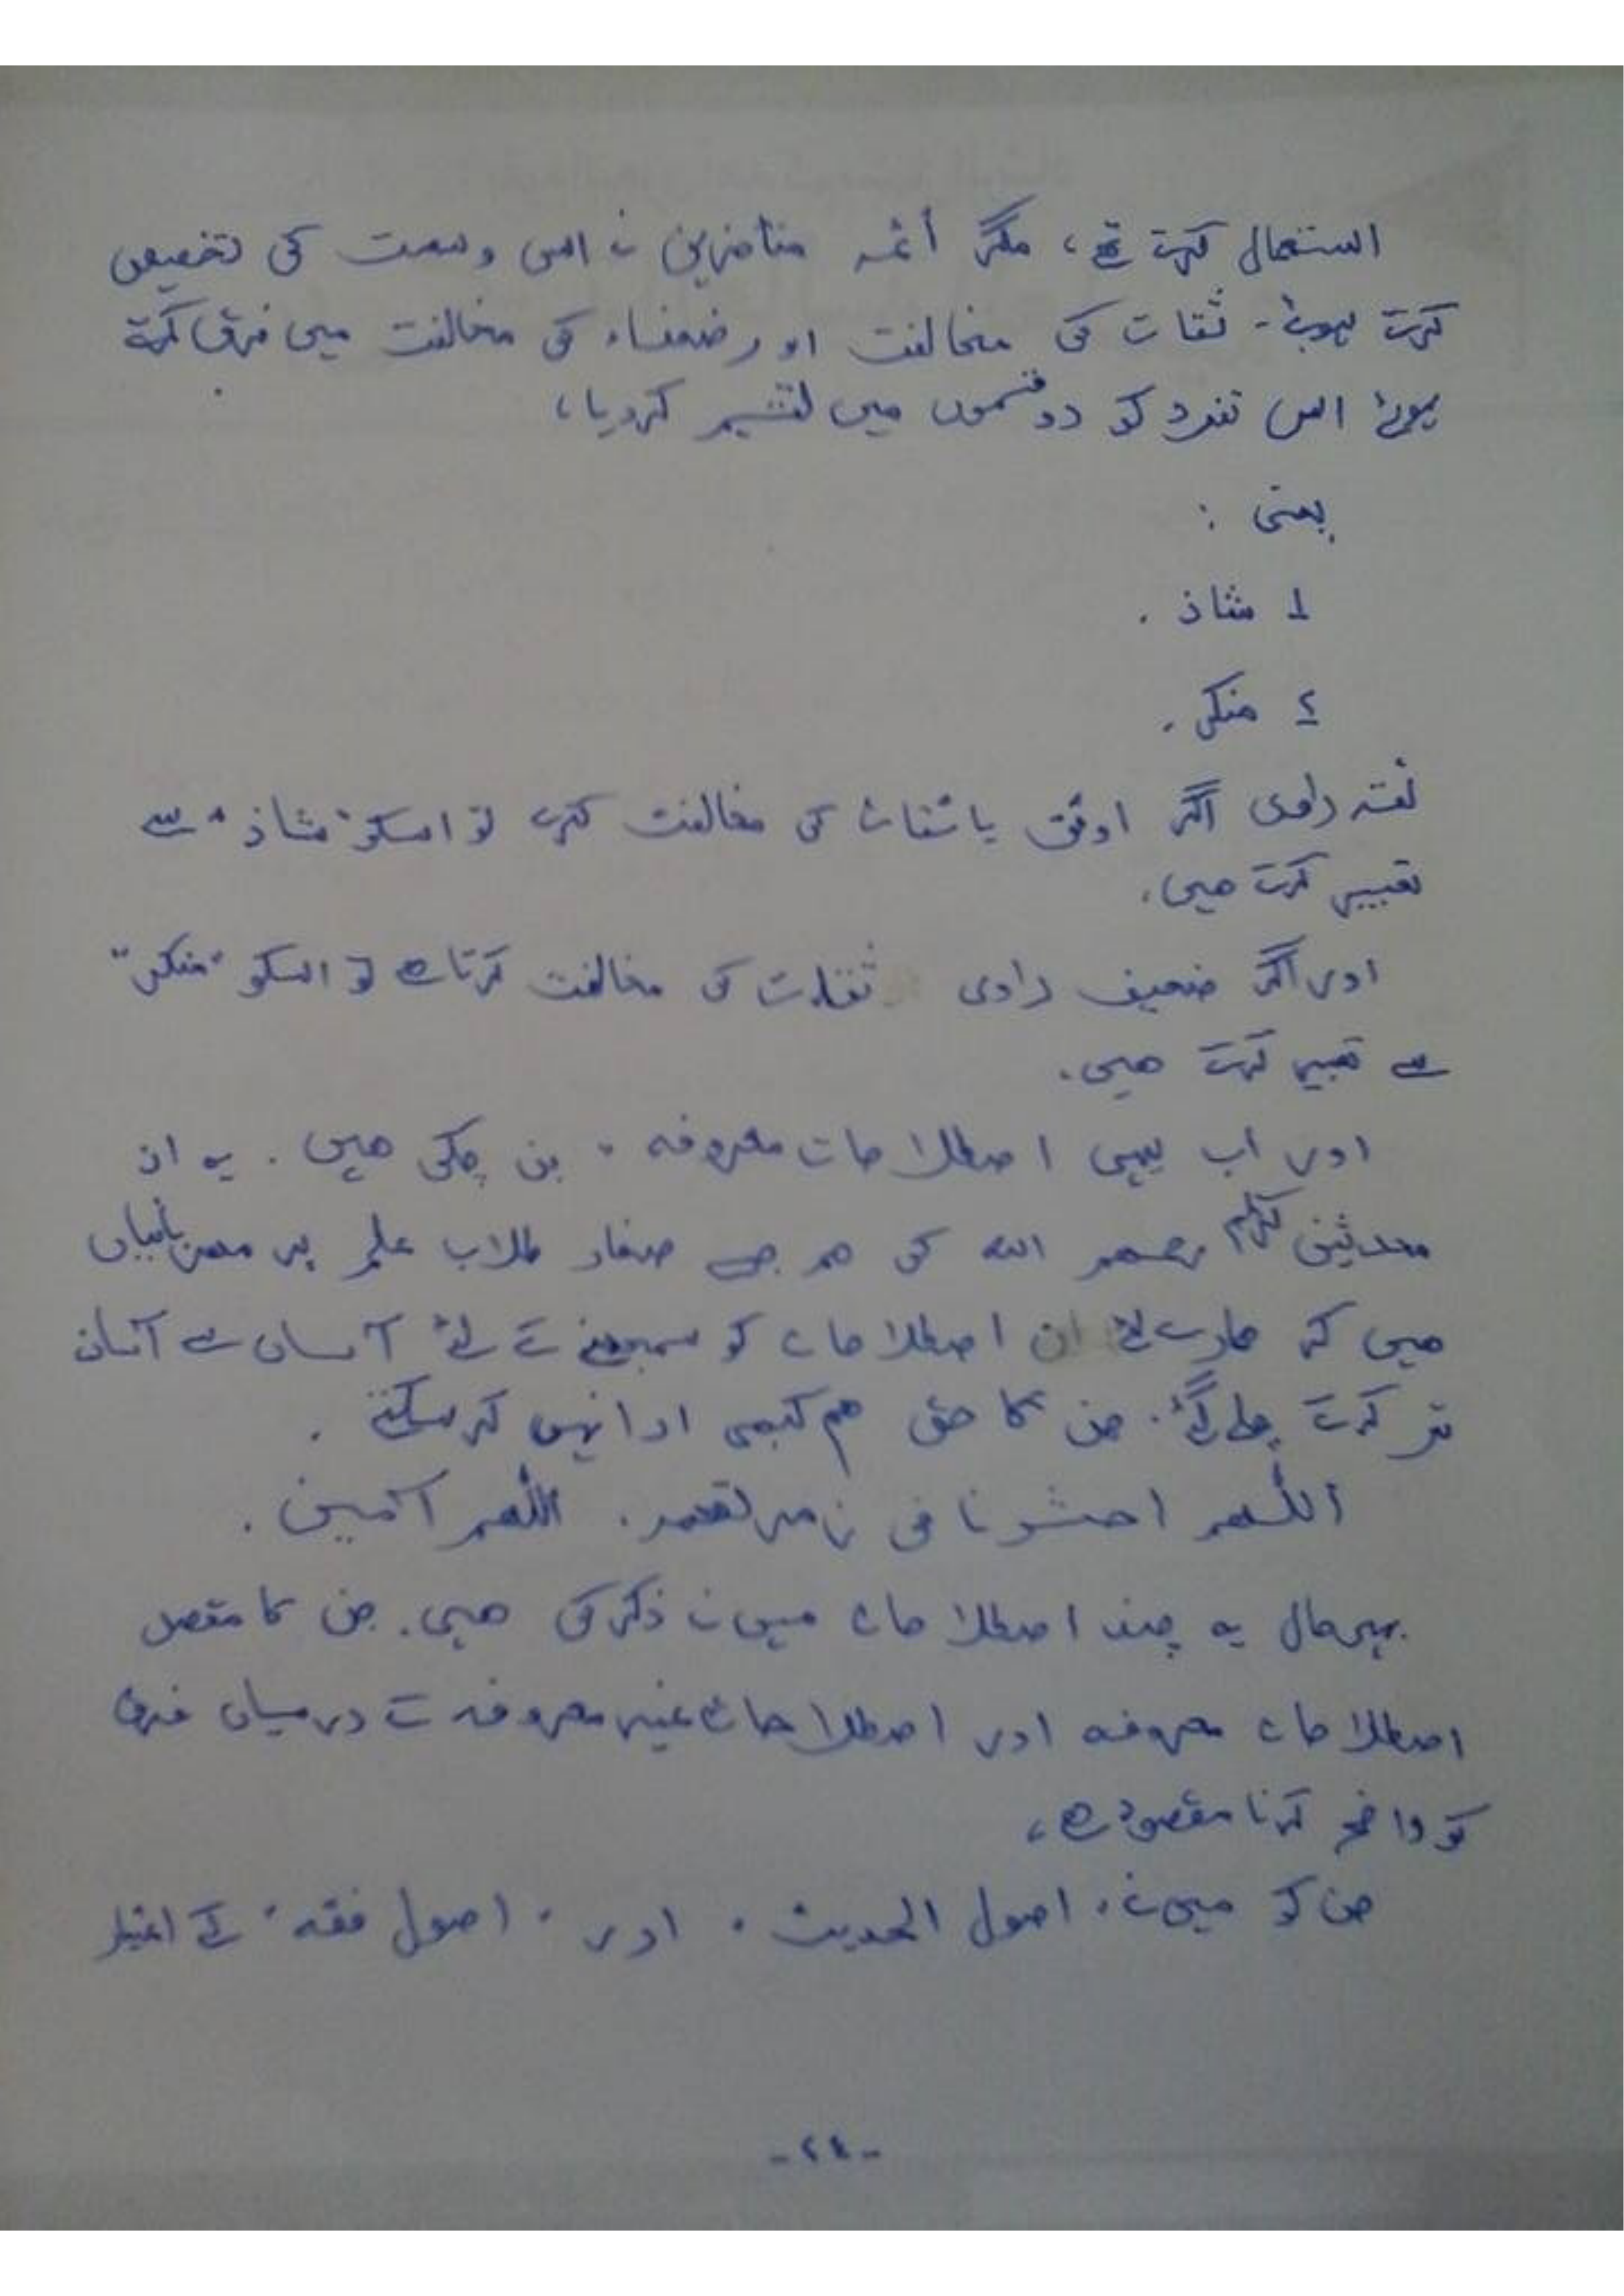 استعمال کرتے تھے، مگر أئمہ متأخرین نے اس وسعت کی تخصیص
کرتے ہوئے - ثقات کی مخالفت اور ضعفاء کی مخالفت میں فرق کرتے
ہوئے اس تفرد کو دو قسموں میں تقسیم کردیا،
یعنی :
1 شاذ .
2 منکر .
ثقہ راوی اگر اوثق یا ثقات کی مخالفت کرے تو اسکو "شاذ" سے
تعبیر کرتے ھیں.
اور اگر ضعیف راوی ثقات کی مخالفت کرتا ہے تو اسکو "منکر"
سے تعبیر کرتے ھیں.
اور اب یہی اصطلاحات معروفہ بن چکی ھیں . یہ ان
محدثین کرام رحمھم اللہ کی ھم جیسے صغار طلاب علم پر مھربانیاں
ھیں کہ ھمارے لئے ان اصطلاحات کو سمجھنے کے لئے آسان سے آسان
تر کرتے چلے گئے. جن کا حق ھم کبھی ادا نہیں کر سکتے .
اللھم احشرنا فی زمرتھم. اللھم آمین .
بہر حال یہ چند اصطلاحات میں نے ذکر کی ھیں. جن کا مقصد
اصطلاحات معروفہ اور اصطلاحات غیر معروفہ کے درمیان فرق
کو واضح کرنا مقصود ہے،
جن کو میں نے "اصول الحدیث" اور "اصول فقہ" کے اعتبار
-٢٤-